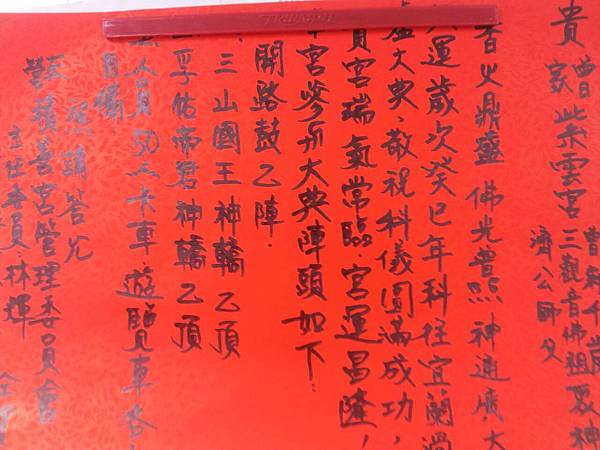 貴曾家紫雲宮
千歲
三觀音佛祖眾神
濟公師父
香火鼎盛 佛光普照 神通廣大
運歲次癸巳年科往宜蘭過
大典、敬祝科儀圓滿成功，
貴宮瑞氣常臨．宮運昌隆，
宮參加大典陣頭如下：
開路鼓乙陣．
三山國王神轎乙頂
孚佑帝君神轎乙頂
人員50人卡車．遊覽車各
自備
請答允
積善宮管理委員會
主任委員：林輝